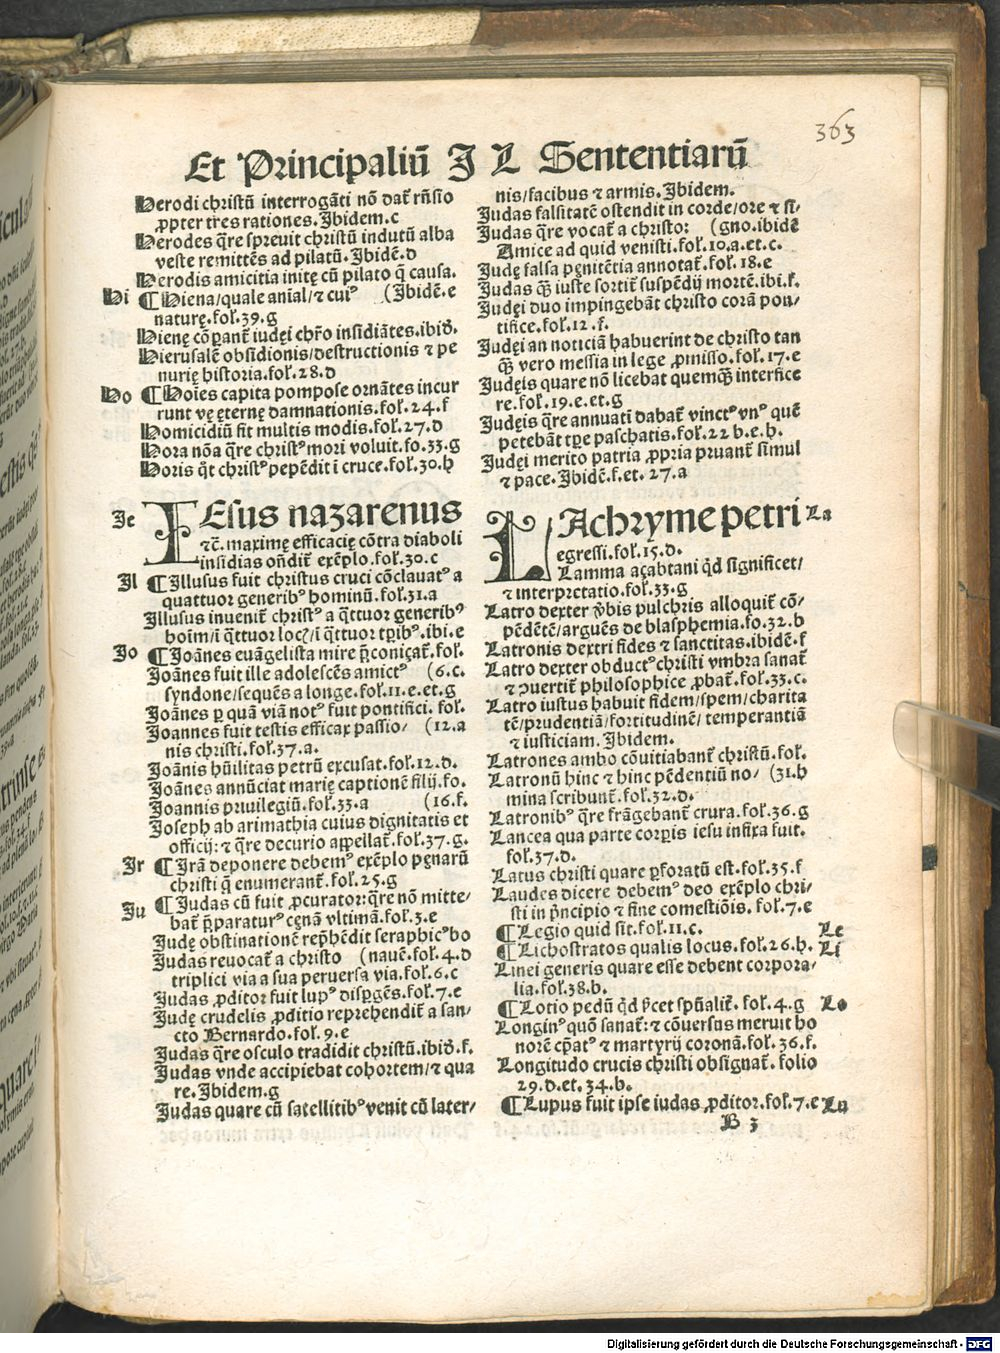 363
Et Principaliū J L Sententiarū
Herodi christū interrogāti nō dat̄ rn̄sio
ꝓpter tres rationes. Ibidem.c
Herodes q̄re spreuit christū indutū alba
veste remittēs ad pilatū. Ibidē.d
Herodis amicitia initę cū pilato q̄ causa.
Hi ¶ Hiena/quale anial/⁊ cuiꝰ (Ibidē.e
naturę.fol.39.g
Hienę cōꝑant̄ iudęi chr̄o insidiātes.ibid̄.
Hierusalē obsidionis/destructionis ⁊ pe
nurię historia.fol.28.d
Ho ¶ Hoīes capita pompose ornātes incur
runt vę ęternę damnationis.fol.24.f
Homicidiū fit multis modis.fol.27.d
Hora nōa q̄re christꝰ mori voluit.fo.33.g
Horis q̄t christꝰ pepēdit ī cruce.fol.30.h
Je IEsus nazarenus
⁊c̄. maximę efficacię cōtra diaboli
insidias on̄dit̄ exēplo.fol.30.c
Jl ¶ Illusus fuit christus cruci cōclauatꝰ a
quattuor generibꝰ hominū.fol.31.a
Illusus inuenit̄ christꝰ a q̄ttuor generibꝰ
hoīm/ī q̄ttuor locꝭ/ī q̄ttuor tꝑibꝰ.ibi.e
Jo ¶ Joānes euāgelista mire p̄coniçat̄.fol.
Joānes fuit ille adolescēs amictꝰ (6.c.
syndone/sequēs a longe.fol.11.e.et.g
Joānes ꝑ quā viā notꝰ fuit pontifici. fol.
Joannes fuit testis efficax passio/ (12.a
nis christi.fol.37.a.
Joānis hūilitas petrū excusat.fol.12.d.
Joānes annūciat marię captionē filij.fo.
Joannis priuilegiū.fol.33.a (16.f.
Joseph ab arimathia cuius dignitatis et
officij: ⁊ q̄re decurio appellat̄.fol.37.g.
Jr ¶ Irā deponere debemꝰ exēplo pęnarū
christi q̄ enumerant̄.fol.25.g
Ju ¶ Judas cū fuit ꝓcurator: q̄re nō mitte/
bat̄ p̄paraturꝰ cęnā vltimā.fol.3.e
Judę obstinationē rep̄hēdit seraphicꝰ bo
Judas reuocat̄ a christo (nauē.fol.4.d
triplici via a sua peruersa via.fol.6.c
Judas ꝓditor fuit lupꝰ disꝑgēs.fol.7.e
Judę crudelis ꝓditio reprehendit̄ a san/
cto Bernardo.fol.9.e
Judas q̄re osculo tradidit christū.ibid̄.f.
Judas vnde accipiebat cohortem/⁊ qua
re. Ibidem.g
Judas quare cū satellitibꝰ venit cū later/
nis/facibus ⁊ armis. Ibidem.
Judas falsitatē ostendit in corde/ore ⁊ si/
Judas q̄re vocat̄ a christo: (gno.ibidē
Amice ad quid venisti.fol.10.a.et.c.
Judę falsa pęnitētia annotat̄.fol.18.e
Judas qꝫ̄ iuste sortit̄ suspēdij mortē.ibi.f.
Judęi duo impingebāt christo corā pon/
tifice.fol.12.f.
Judęi an noticiā habuerint de christo tan
qꝫ̄ vero messia in lege ꝓmisso.fol.17.e
Judęis quare nō licebat quemqꝫ̄ interfice
re.fol.19.e.et.g
Judęis q̄re annuati dabat̄ vinctꝰ vnꝰ quē
petebāt tꝑe paschatis.fol.22 b.e.h.
Judęi merito patria ꝓpria priuant̄ simul
⁊ pace. Ibidē.f.et.27.a
LAchryme petri La
egressi.fol.15.d.
Lamma açabtani q̄d significet/
⁊ interpretatio.fol.33.g
Latro dexter v̄bis pulchris alloquit̄ cō/
pēdētē/arguēs de blasphemia.fo.32.b
Latronis dextri fides ⁊ sanctitas.ibidē.f
Latro dexter obductꝰ christi vmbra sanat̄
⁊ ɔuertit̄ philosophice ꝓbat̄.fol.33.c.
Latro iustus habuit fidem/spem/charita
tē/prudentiā/fortitudinē/temperantiā
⁊ iusticiam. Ibidem.
Latrones ambo cōuitiabant̄ christū.fol.
Latronū hinc ⁊ hinc pēdentiū no/ (31.h
mina scribunt̄.fol.32.d.
Latronibꝰ q̄re frāgebant̄ crura.fol.36.g
Lancea qua parte corꝑis iesu infixa fuit.
fol.37.d.
Latus christi quare ꝑforatū est.fol.35.f
Laudes dicere debemꝰ deo exēplo chri/
sti in p̄ncipio ⁊ fine comestiōis. fol.7.e
¶ Legio quid sit.fol.11.c. Le
¶ Lichostratos qualis locus.fol.26.h. Li
Linei generis quare esse debent corpora/
lia.fol.38.b.
¶ Lotio pedū q̄d p̄cet sp̄ualit̄. fol.4.g Lo
Longinꝰ quō sanat̄: ⁊ cōuersus meruit ho
norē cp̄atꝰ ⁊ martyrij coronā.fol.36.f.
Longitudo crucis christi obsignat̄. folio
29.d.et.34.b.
¶ Lupus fuit ipse iudas ꝓditor.fol.7.e Lu
B 3
Digitalisierung gefördert durch die Deutsche Forschungsgemeinschaft - DFG